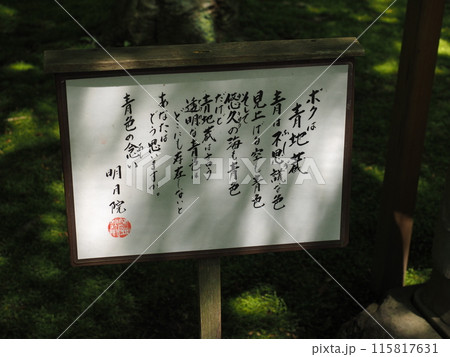 ボクは
青地蔵
青は不思議な色
見上げる空も青色
そして
悠久の海も青色
だけど
青地蔵は
透明な青は
どこにも存在しないと
あなたは
どう思います。
青色の念い
明月院
pixta.jp - 115817631